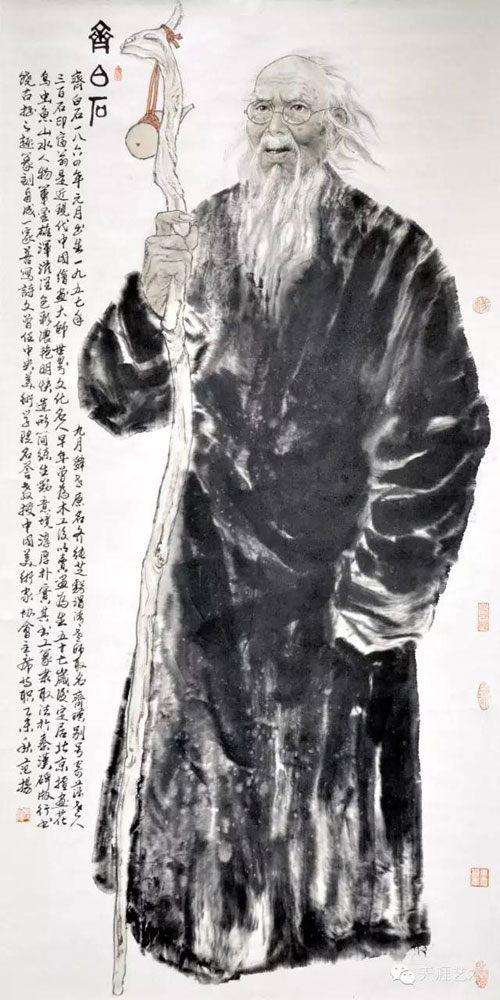 齊白石
齊白石一八六四年元月出生一九五七年九月辭世原名齐純芝號渭清老師取名齊璜别号寄萍老人
三百石印富翁是近現代中國繪畫大師世界文化名人早年曾為木工後以賣畫為生五十七歲後定居北京擅畫花
鳥虫魚山水人物筆墨雄渾滋潤色彩濃艷明快造形简練生動意境淳厚朴實其书工篆隸取法於秦漢碑版行书
饒古拙之趣篆刻自成一家善寫詩文曾任中央美術學院名誉教授中國美術家協會主席等職乙未秋范揚
天涯艺术